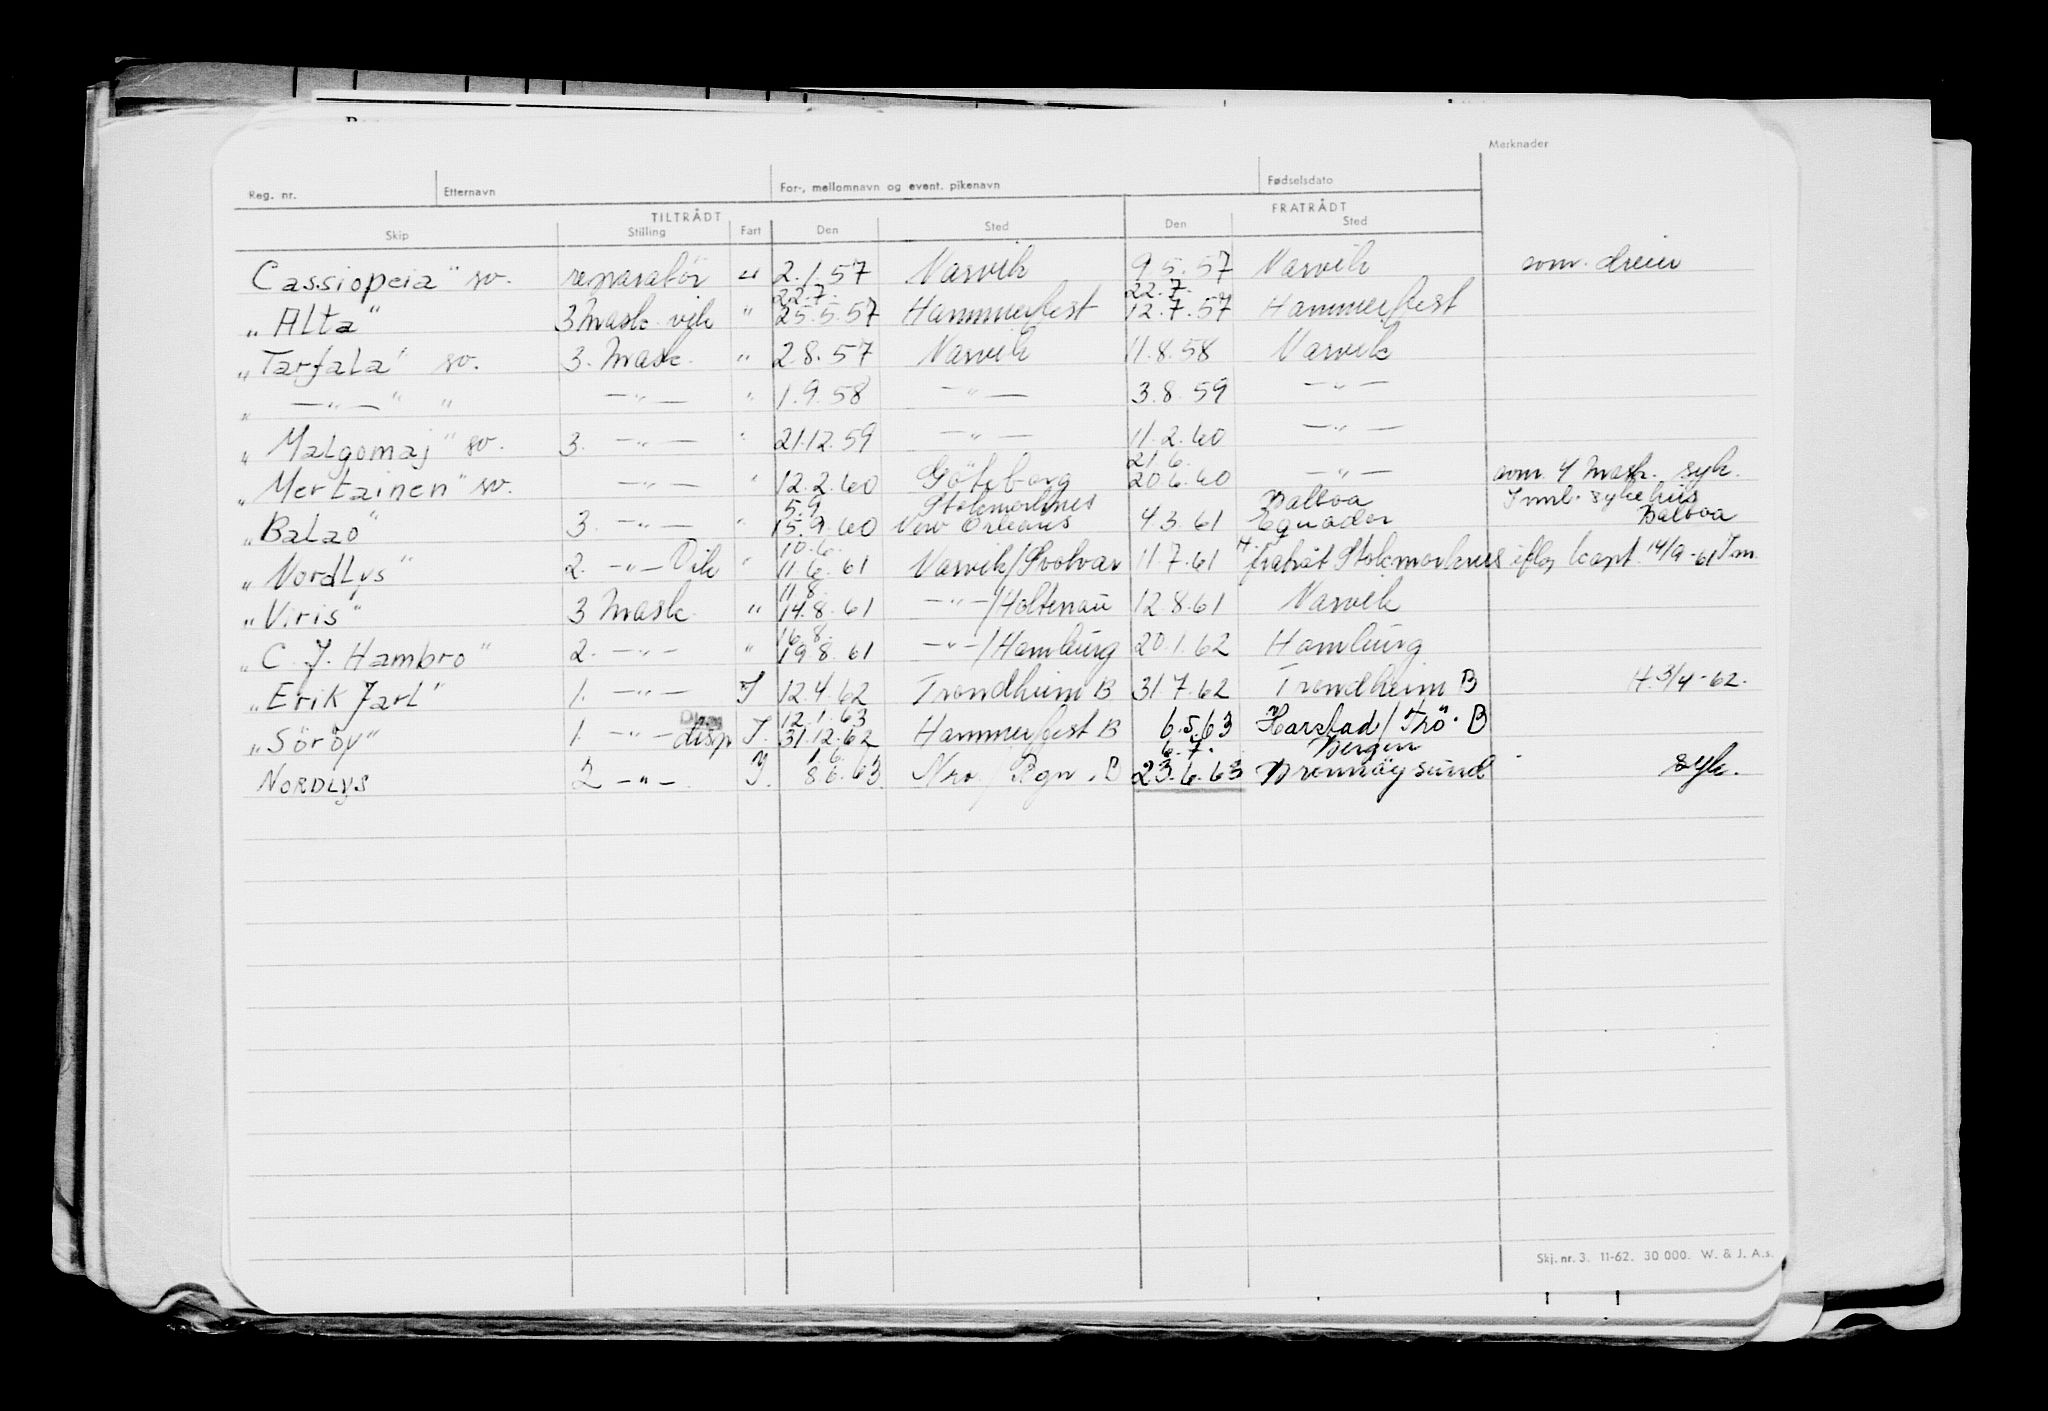 Merknader
Reg. nr. Etternavn For-, mellomnavn og event. pikenavn Fødselsdato
TILTRÅDT FRATRÅDT
Skip Stilling Fart Den Sted Den Sted
Cassiopeia" sv. reparatör " 2.1.57 Narvik 9.5.57 Narvik som. dreier
22.7. 22.7.
"Alta" 3 Mask. vik " 25.5.57 Hammerfest 12.7.57 Hammerfest
"Tarfala" sv. 3. Mask. " 2.8.57 Narvik 11.8.58 Narvik
" —"—" " —"— " 1.9.58 —"— 3.8.59 —"—
"Malgomaj" sv. 3. —"— " 21.12.59 —"— 11.2.60 —"—
21.6.
"Mertainen" sv. —"— " 12.2.60 Göteborg 20.6.60 —"— som. 4 Mask. syk.
5.9 Stokmarknes Balboa Innl. sykehus
"Balao" 3. —"— " 15.9.60 New Orleans 4.3.61 Equador Balboa
10.6.
"Nordlys" 2. —"— Vik " 11.6.61 Narvik/Svolvær 11.7.61 H. fratråt Stokmarknes iflg kapt. 14/9-61 Im.
11.8.
"Viris" 3 Mask. " 14.8.61 —"—/Holtenau 12.8.61 Narvik
16.8.
"C. J. Hambro" 2. —"— " 19.8.61 —"—/Hamburg 20.1.62 Hamburg
"Erik Jarl" 1. —"— I 12.4.62 Trondheim B 31.7.62 Trondheim B H. 3/4-62.
12.1.63
"Söröy" 1. —"— disp I. 31.12.62 Hammerfest B 6.5.63 Harstad/Trö. B
1.6. 6.7. Bergen
NORDLYS 2 —"—. I. 8.6.63. / Bgn. B 23.6.63 Brønnöysund syk.
Skj. nr. 3. 11-62. 30 000. W. & J. A.s.